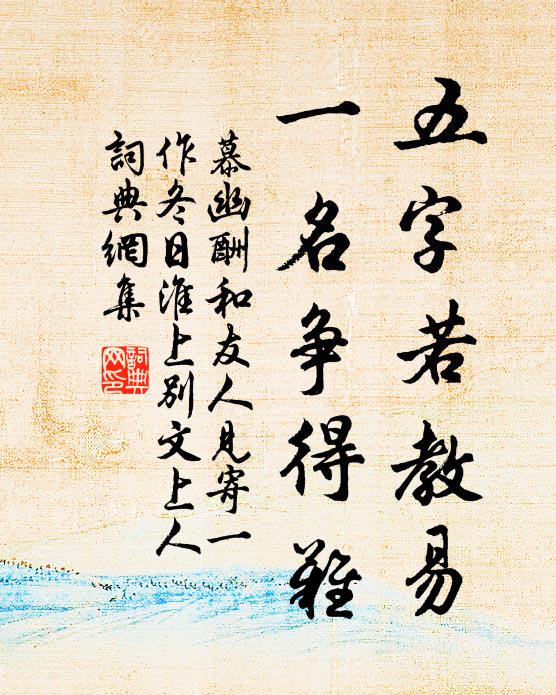 五字若教易
一名争得難
慕幽酬和友人見寄一
作冬日淮上別文上人
詞典網集
詞典
网印